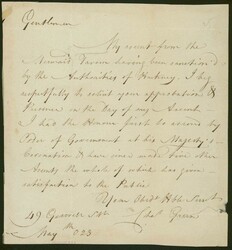 Gentlemen
My ascent from the
Norwich Tavern having been sanctioned
by the Authorities of Hackney I beg
respectfully to solicit your approbation &
Presence on the day of my Ascent
I had the Honour first to ascend by
Order of Government at his Majesty's
Coronation & have since made two other
Ascents the whole of which has given
satisfaction to the Public
Your Obdt Hble Servt
Chas Green
49 Goswell St
May 1823